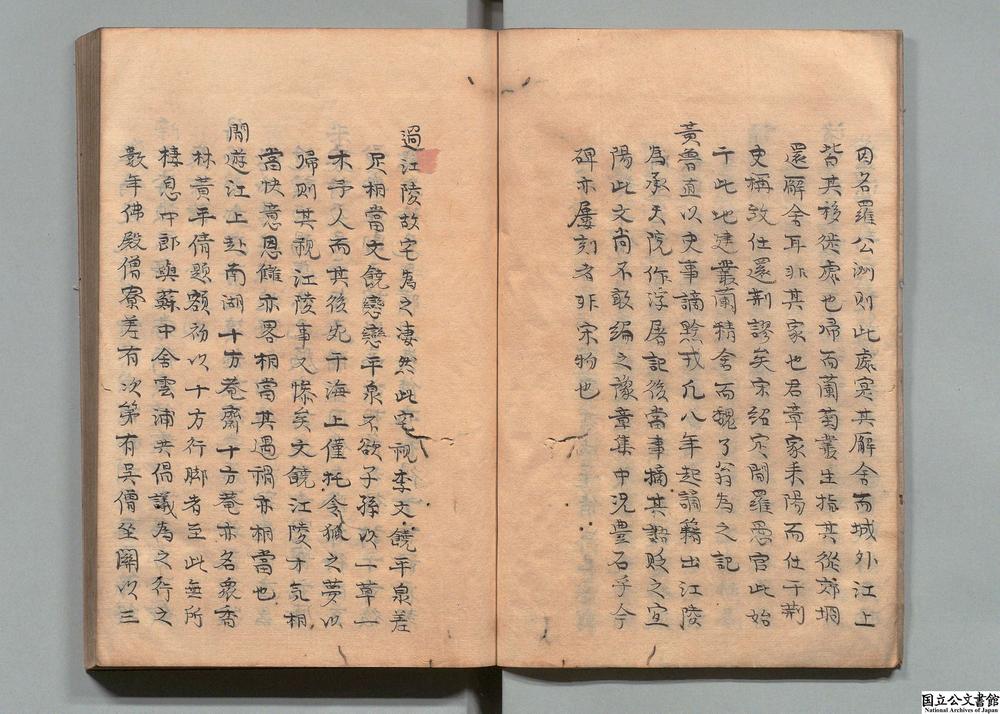 因名羅公洲則此處寔其廨舍而城外江上
皆其移徙處也歸而蘭菊叢生指其從郊坰
還廨舍耳非其家也君章家耒陽而仕于荆
史稱致仕還荆謬矣宋紹定間羅愚官此始
于此地建叢蘭精舍而魏了翁為之記
黃魯直以史事謫黔戎凡八年起謫籍出江陵
為承天院作浮屠記後當事摘其語貶之宜
陽此文尚不敢編之豫章集中況豊石乎今
碑亦屢刻者非宋物也
過江陵故宅為之凄然此宅視李文饒平泉差
足相當文饒戀戀平泉不欲子孫以一草一
木予人而其後死于海上僅托令狐之夢以
歸則其視江陵事又慘矣文饒江陵才氣相
當快意恩讎亦畧相當其遇禍亦相當也
間遊江上赴南湖十方菴齋十方菴亦名衆香
林黃平倩題額初以十方行脚者至此無所
棲息中郎與蘇中舍雲浦共倡議為之行之
數年佛殿僧寮差有次第有吳僧坐關以三
国立公文書館
National Archives of Japan